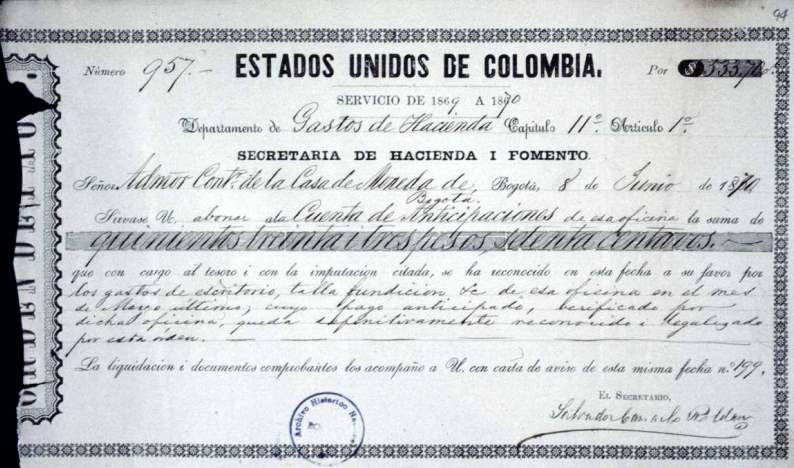 94
Número 957.- ESTADOS UNIDOS DE COLOMBIA. Por $ 533,70
SERVICIO DE 1869 A 1870
Departamento de Gastos de Hacienda Capítulo 11º Artículo 1º
SECRETARIA DE HACIENDA I FOMENTO.
Señor Admor Contr. de la Casa de Moneda de Bogotá, Bogotá, 8 de Junio de 1870
Sirvase U. abonar a la Cuenta de Anticipaciones de esa oficina la suma de
quinientos treinta i tres pesos, setenta centavos.—
que con cargo al tesoro i con la imputacion citada, se ha reconocido en esta fecha a su favor por
los gastos de escritorio, talla fundicion &c de esa oficina en el mes
de Mayo último; cuyo pago anticipado, verificado por
dicha oficina, queda definitivamente reconocido i legalizado
por esta orden.
La liquidacion i documentos comprobantes los acompaño a U. con carta de aviso de esta misma fecha n.º 199.
EL SECRETARIO,
Salvador
Archivo Historico